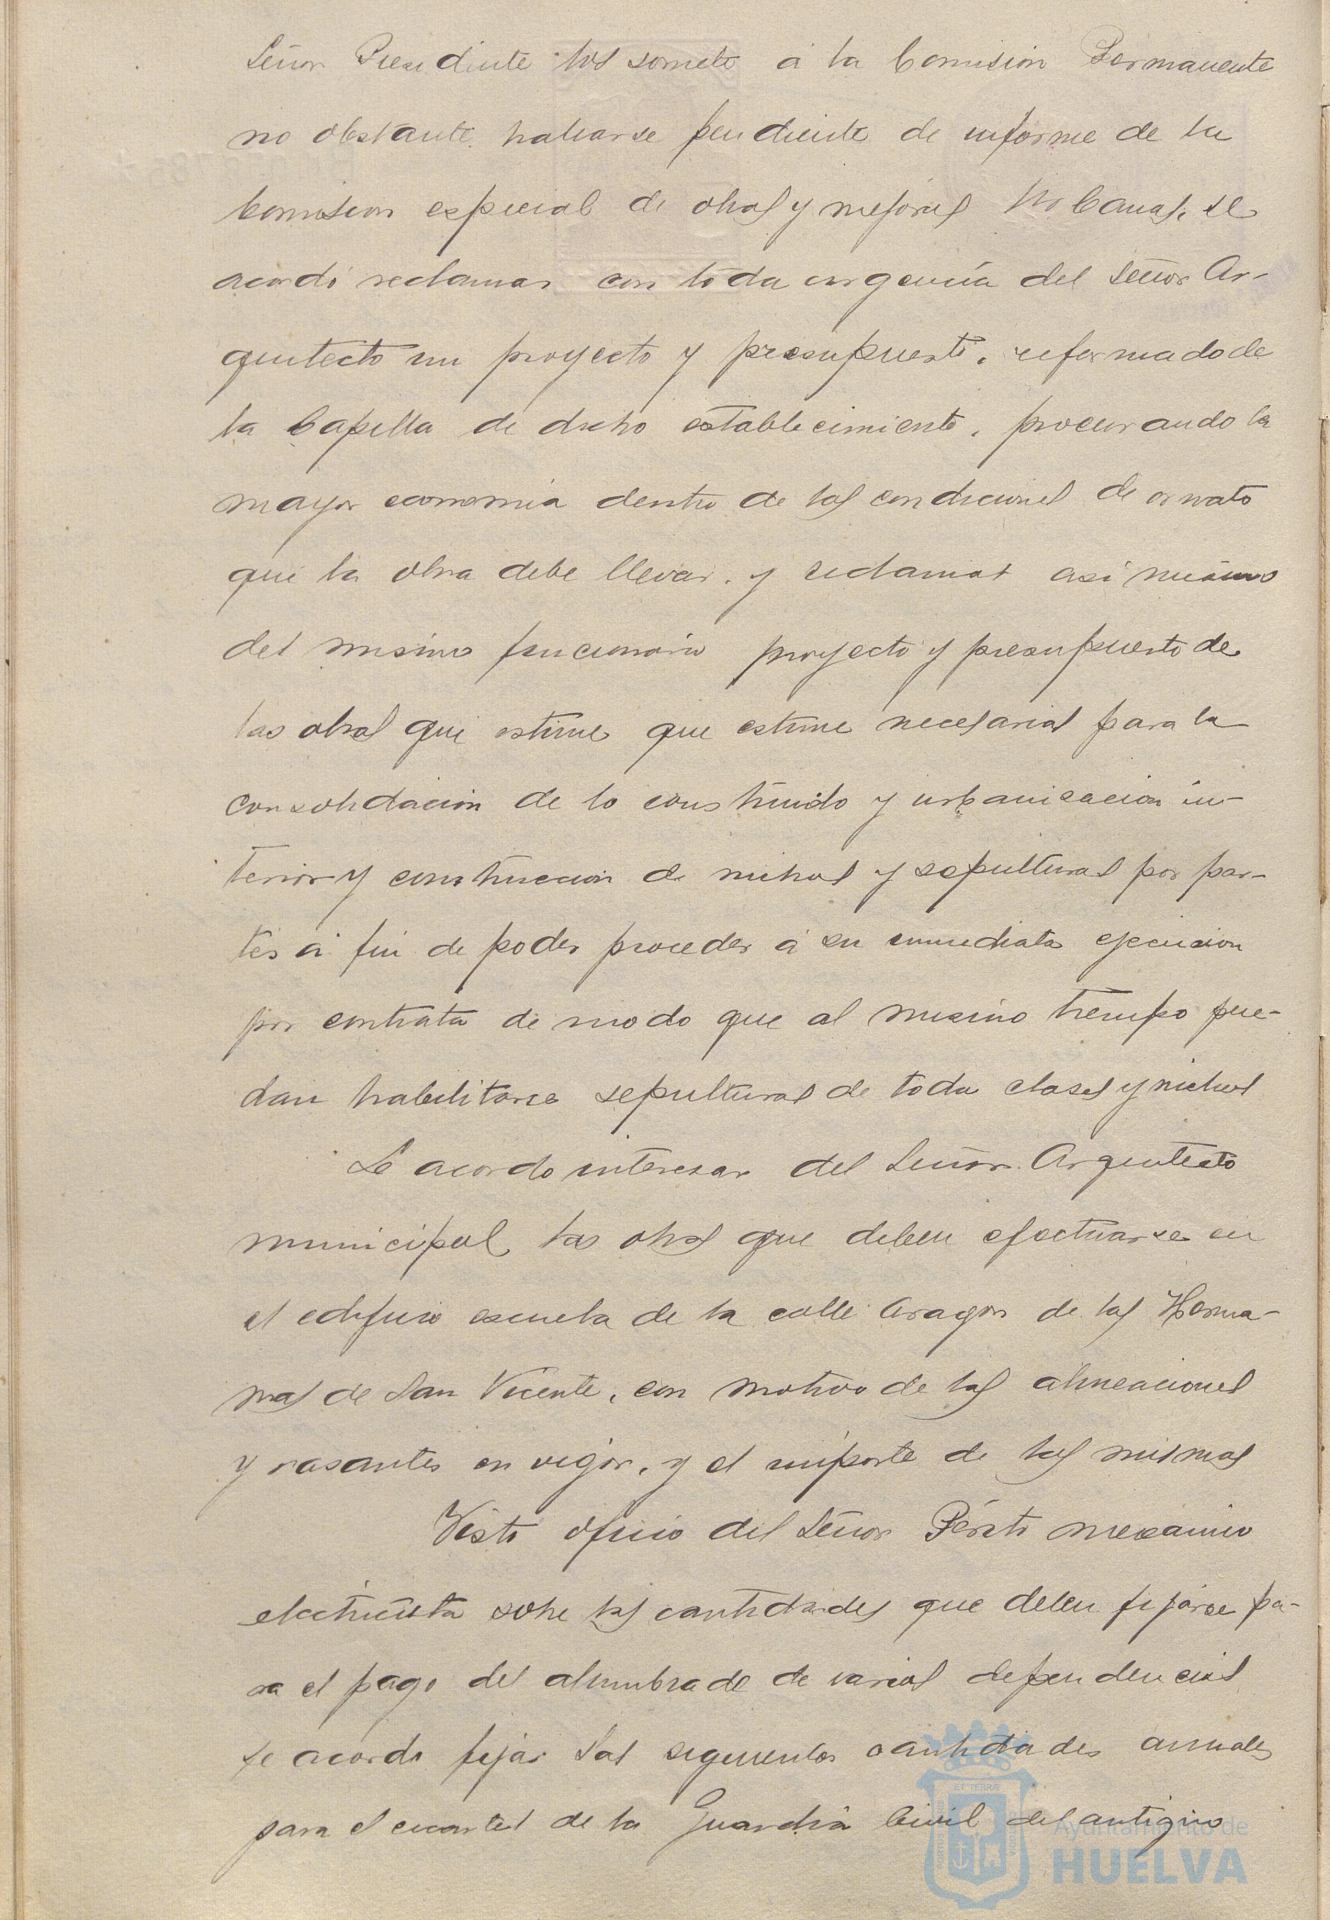 Señor Presidente los somete á la Comision Permanente
no obstante hallarse pendiente de informe de la
Comision especial de obras y mejoras Urbanas, se
acordó reclamar con toda urgencia del Señor Ar-
quitecto un proyecto y presupuesto, reformado de
la Capilla de dicho establecimiento, procurando la
mayor economia dentro de las condiciones de ornato
que la obra debe llevar, y reclamar asi mismo
del mismo funcionario proyecto y presupuesto de
las obras que estime que estime necesarias para la
consolidación de lo construido y urbanización in-
terior y construccion de nichos y sepulturas por par-
tes á fin de poder proceder á su inmediata ejecucion
por contrata de modo que al mismo tiempo pue-
dan habilitarse sepulturas de toda clases y nichos
Se acordo interesar del Señor Arquitecto
municipal las obras que deben efectuarse en
el edificio escuela de la calle Aragon de las Herma-
nas de San Vicente, con motivo de las alineaciones
y rasantes en vigor, y el importe de las mismas
Visto oficio del Señor Périto mecanico
electricista sobre las cantidades que deben fijarse pa-
ra el pago del alumbrado de varias dependencias
se acordo fijar las siguientes cantidades anuales
para el cuartel de la Guardia Civil del antiguo
ET TERRÆ
Ayuntamiento de
HUELVA